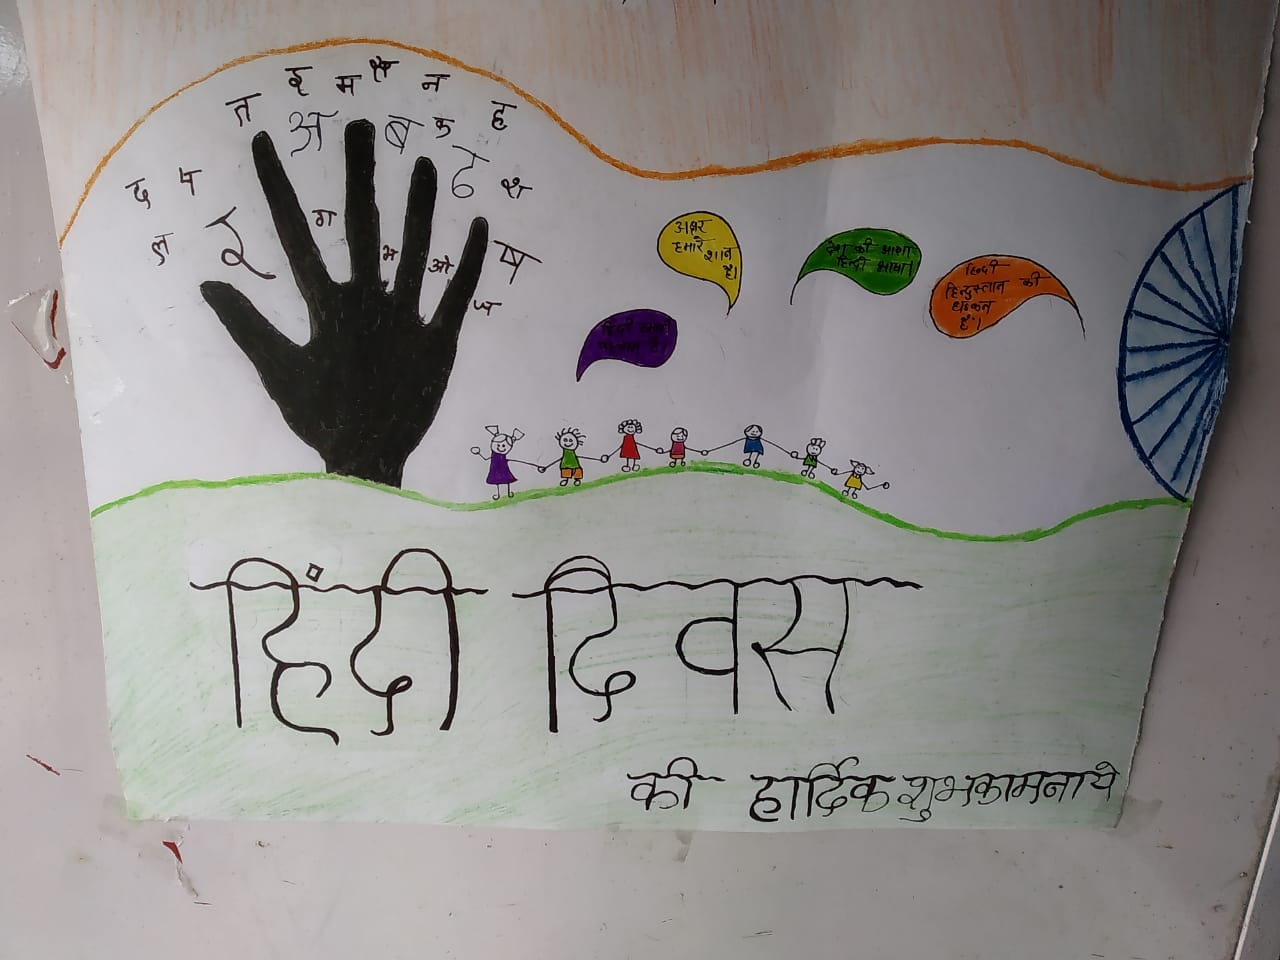 इ म क्ष न
त अ ब क ह
द प ढ श
ल इ ग ष
भ ओ
ज
अक्षर
हमारे
शान
है।
देश की आशा
हिन्दी भाषा।
हिन्दी
हिन्दुस्तान की
धड़कन
है।
हिंदी
है।
हिंदी दिवस
की हार्दिक शुभकामनाये